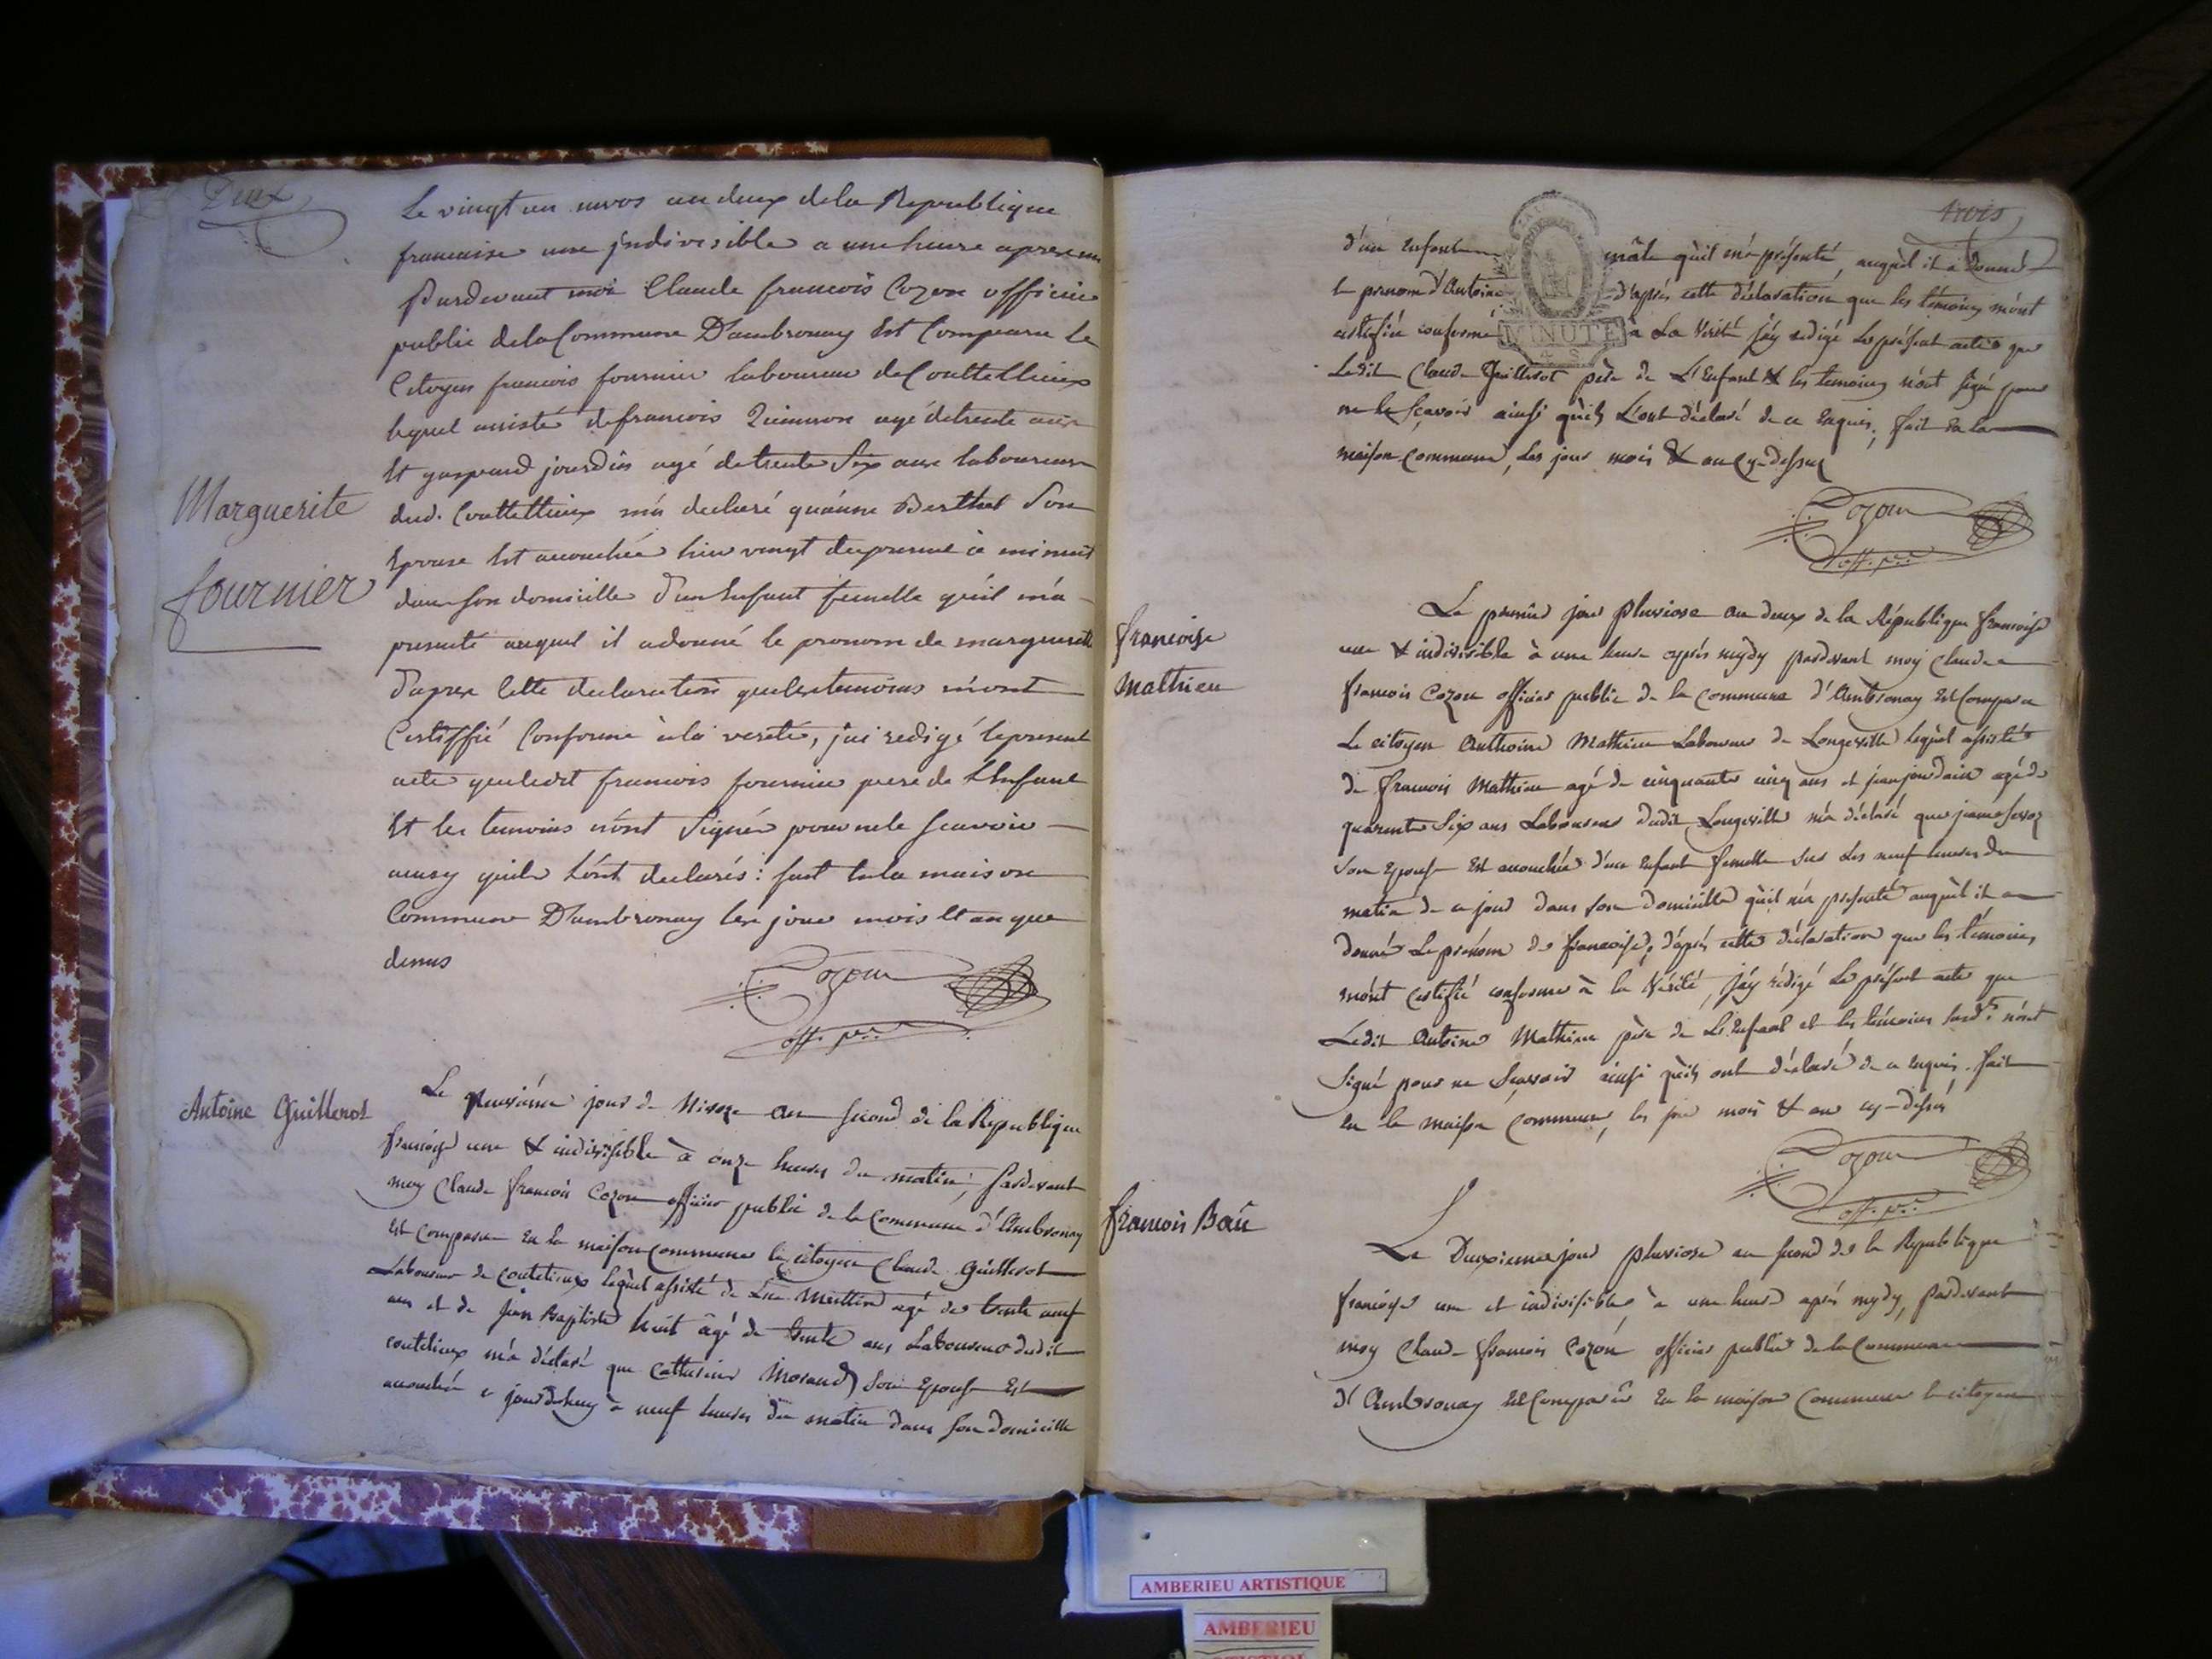 Deux
Le vingt un nivos an deux de la Republique
francaise une jndivisible a une heure apres mi
Pardevant moi Claude francois Cozon officier
public de la Commune D'ambronay Est Comparu le
Citoyen francois fournier laboureur de Couttellieux
lequel assisté de francois agé de trente
Et gaspard jourdin agé de trente Six ans laboureurs
dud. Couttellieux m'a declaré qu'anne Berthet Son
Epouse Est accouchée hier vingt du present a minuit
dans son domicille d'un Enfant femelle qu'il m'a
presenté auquel il a donné le prenom de marguerite
d'apres Cette declaration que les temoins m'ont
Certiffié Conforme à la verité, j'ai redigé le present
acte que ledit francois fournier pere de L'Enfant
Et les temoins n'ont Signés pour ne le scavoir
ainsy quils L'ont declarés : fait En la maison
Commune D'ambronay les jour mois Et an que
dessus
Marguerite
fournier
Cozon
off. p.
Antoine Guillerot
Le jour de Nivose an second de la Republique
francoise une & indivisible à onze heures du matin, pardevant
moy Claude francois Cozon officier public de la Commune d'Ambronay
est comparu en la maison commune le citoyen Claude Guillerot
Laboureur de coutelieux lequel assisté de agé de trente neuf
ans et de Jean Baptiste huit âgé de trente ans Laboureur dudit
coutelieux m'a déclaré que Catherine Morand son Epouse Est
accouchée à neuf heures du matin dans son domicille
trois
d'un Enfant mâle qu'il m'a présenté, auquel il a donné
le prenom d'Antoine d'après cette déclaration que les témoins m'ont
certifié conforme à La Vérité j'ay redigé Le présent acte que
Ledit Claude Guillerot père de L'Enfant & les temoins n'ont signé pour
ne le sçavoir ainsi qu'ils L'ont déclaré de ce enquis, fait en la
maison commune, Les jour mois & an cy-dessus
MINUTE
4 S
Cozon
off. p.
francoise
Mathieu
Le premier jour pluviose an deux de la République francoise
une & indivisible à une heure après mydy pardevant moy Claude
francois Cozon officier public de la commune d'Ambronay Est Comparu
Le citoyen Anthoine Mathieu Laboureur de Longeville lequel assisté
de francois Mathieu agé de cinquante cinq ans et jean jourdain agé de
quarente Six ans Laboureurs dudit Longeville m'a déclaré que
Son Epouse Est accouchée d'un Enfant femelle sur Les neuf heures du
matin de ce jour dans son domicille qu'il m'a présenté auquel il a
donné Le prénom de francoise, d'après cette déclaration que les témoins
m'ont certifié conforme à la Vérité, j'ay rédigé Le présent acte que
Ledit Antoine Mathieu père de L'Enfant et les témoins n'ont
Signé pour ne Scavoir ainsi qu'ils ont déclaré de ce enquis. fait
en la maison commune, les jour mois & an cy-dessus
Cozon
off. p.
francois Baú
Le Deuxieme jour pluviose an second de la Republique
francoise une et indivisible, à une heure après mydy, Pardevant
moy Claude francois Cozon officier public de la Commune
d'Ambronay est Comparu En la maison Commune le citoyen
AMBERIEU ARTISTIQUE
AMBERIEU
ARTISTIQUE